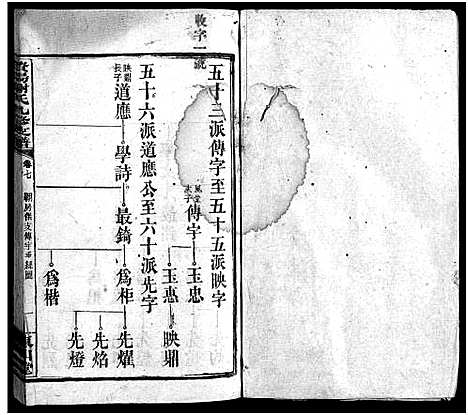 收字一號
五十三派傳字至五十五派映字
鳳堂長子
傳字
玉忠
玉惠
映鼎
五十六派道應公至六十派先字
映鼎長子
道應
學詩
最錡
為柜
先燿
先焰
先燈
為楷
氏九修支譜
卷七